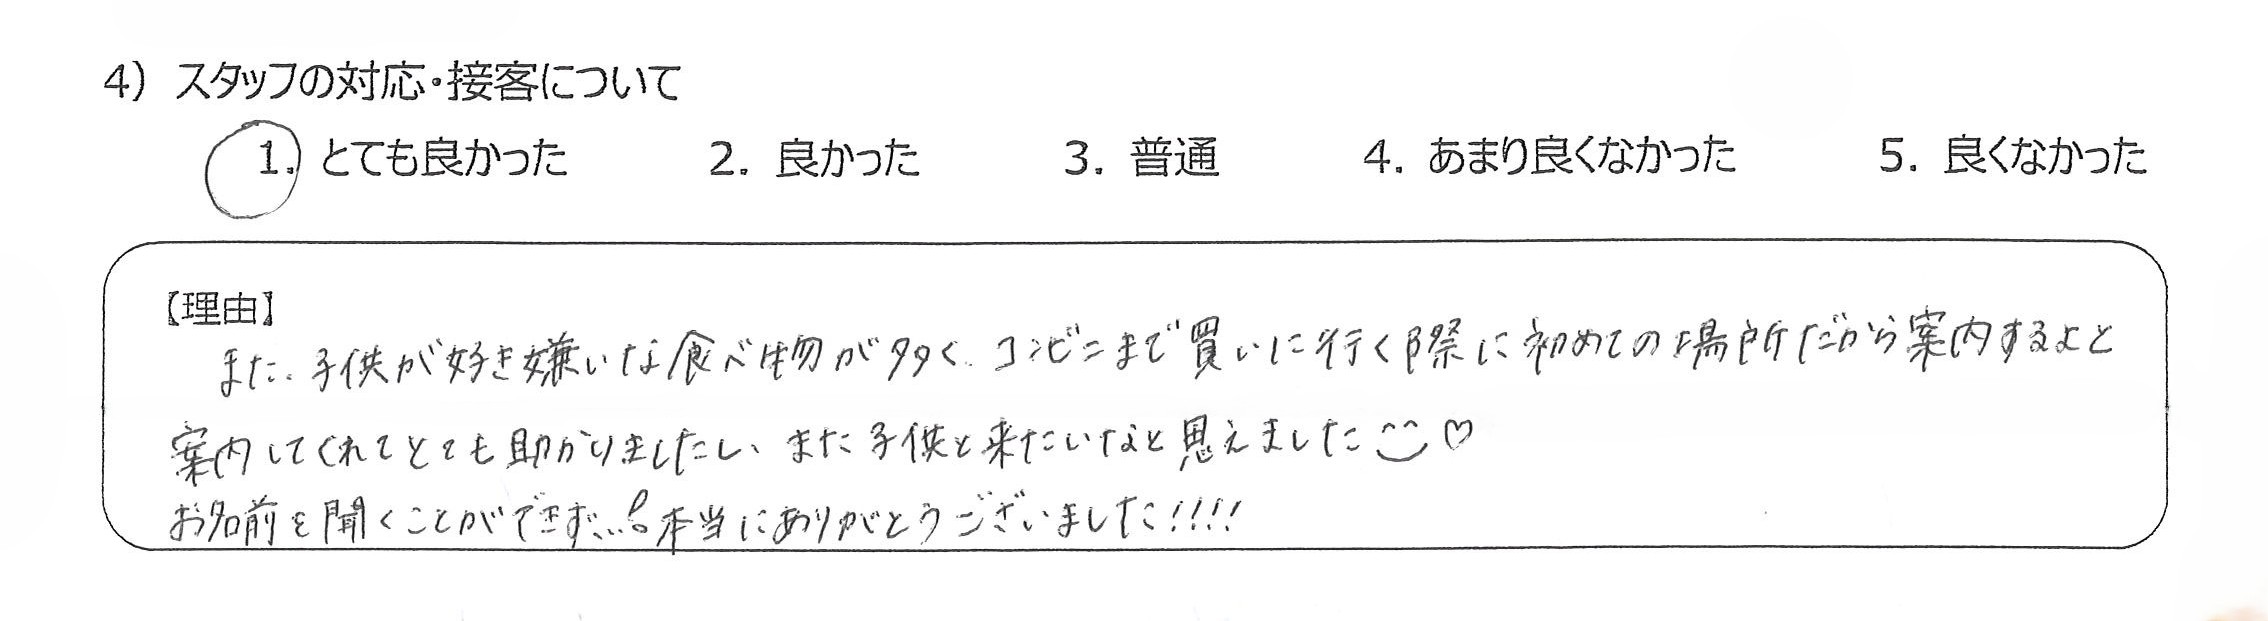 4) スタッフの対応・接客について
1. とても良かった 2. 良かった 3. 普通 4. あまり良くなかった 5. 良くなかった
【理由】
また、子供が好き嫌いな食べ物が多く、コンビニまで買いに行く際に初めての場所だから案内するよと
案内してくれてとても助かりましたし、また子供と来たいなと思えました♡
お名前を聞くことができず...!本当にありがとうございました!!!!